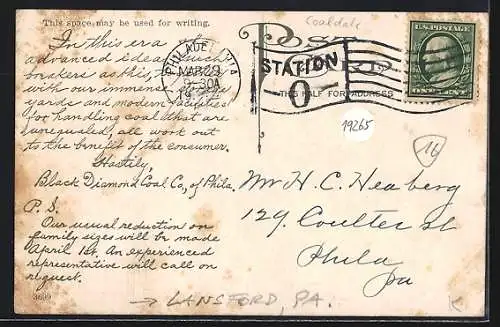 This space may be used for writing.
Coaldale
In this era of
advanced ideas, such
breakers as this,
with our immense
yards and modern facilities
for handling coal that are
unequaled, all work out
to the benefit of the consumer.
Hastily,
Black Diamond Coal Co, of Phila.
P. S.
Our usual reduction on
family sizes will be made
April 1st. An experienced
representative will call on
request.
3699
PHILADELPHIA
MAR 29
9-30A
STATION
O
POST CARD
THIS HALF FOR ADDRESS
U.S. POSTAGE
ONE CENT
19265
16
Mr H. C. Heaberg
129. Coulter st
Phila
Pa
→ LANSFORD, PA.
K